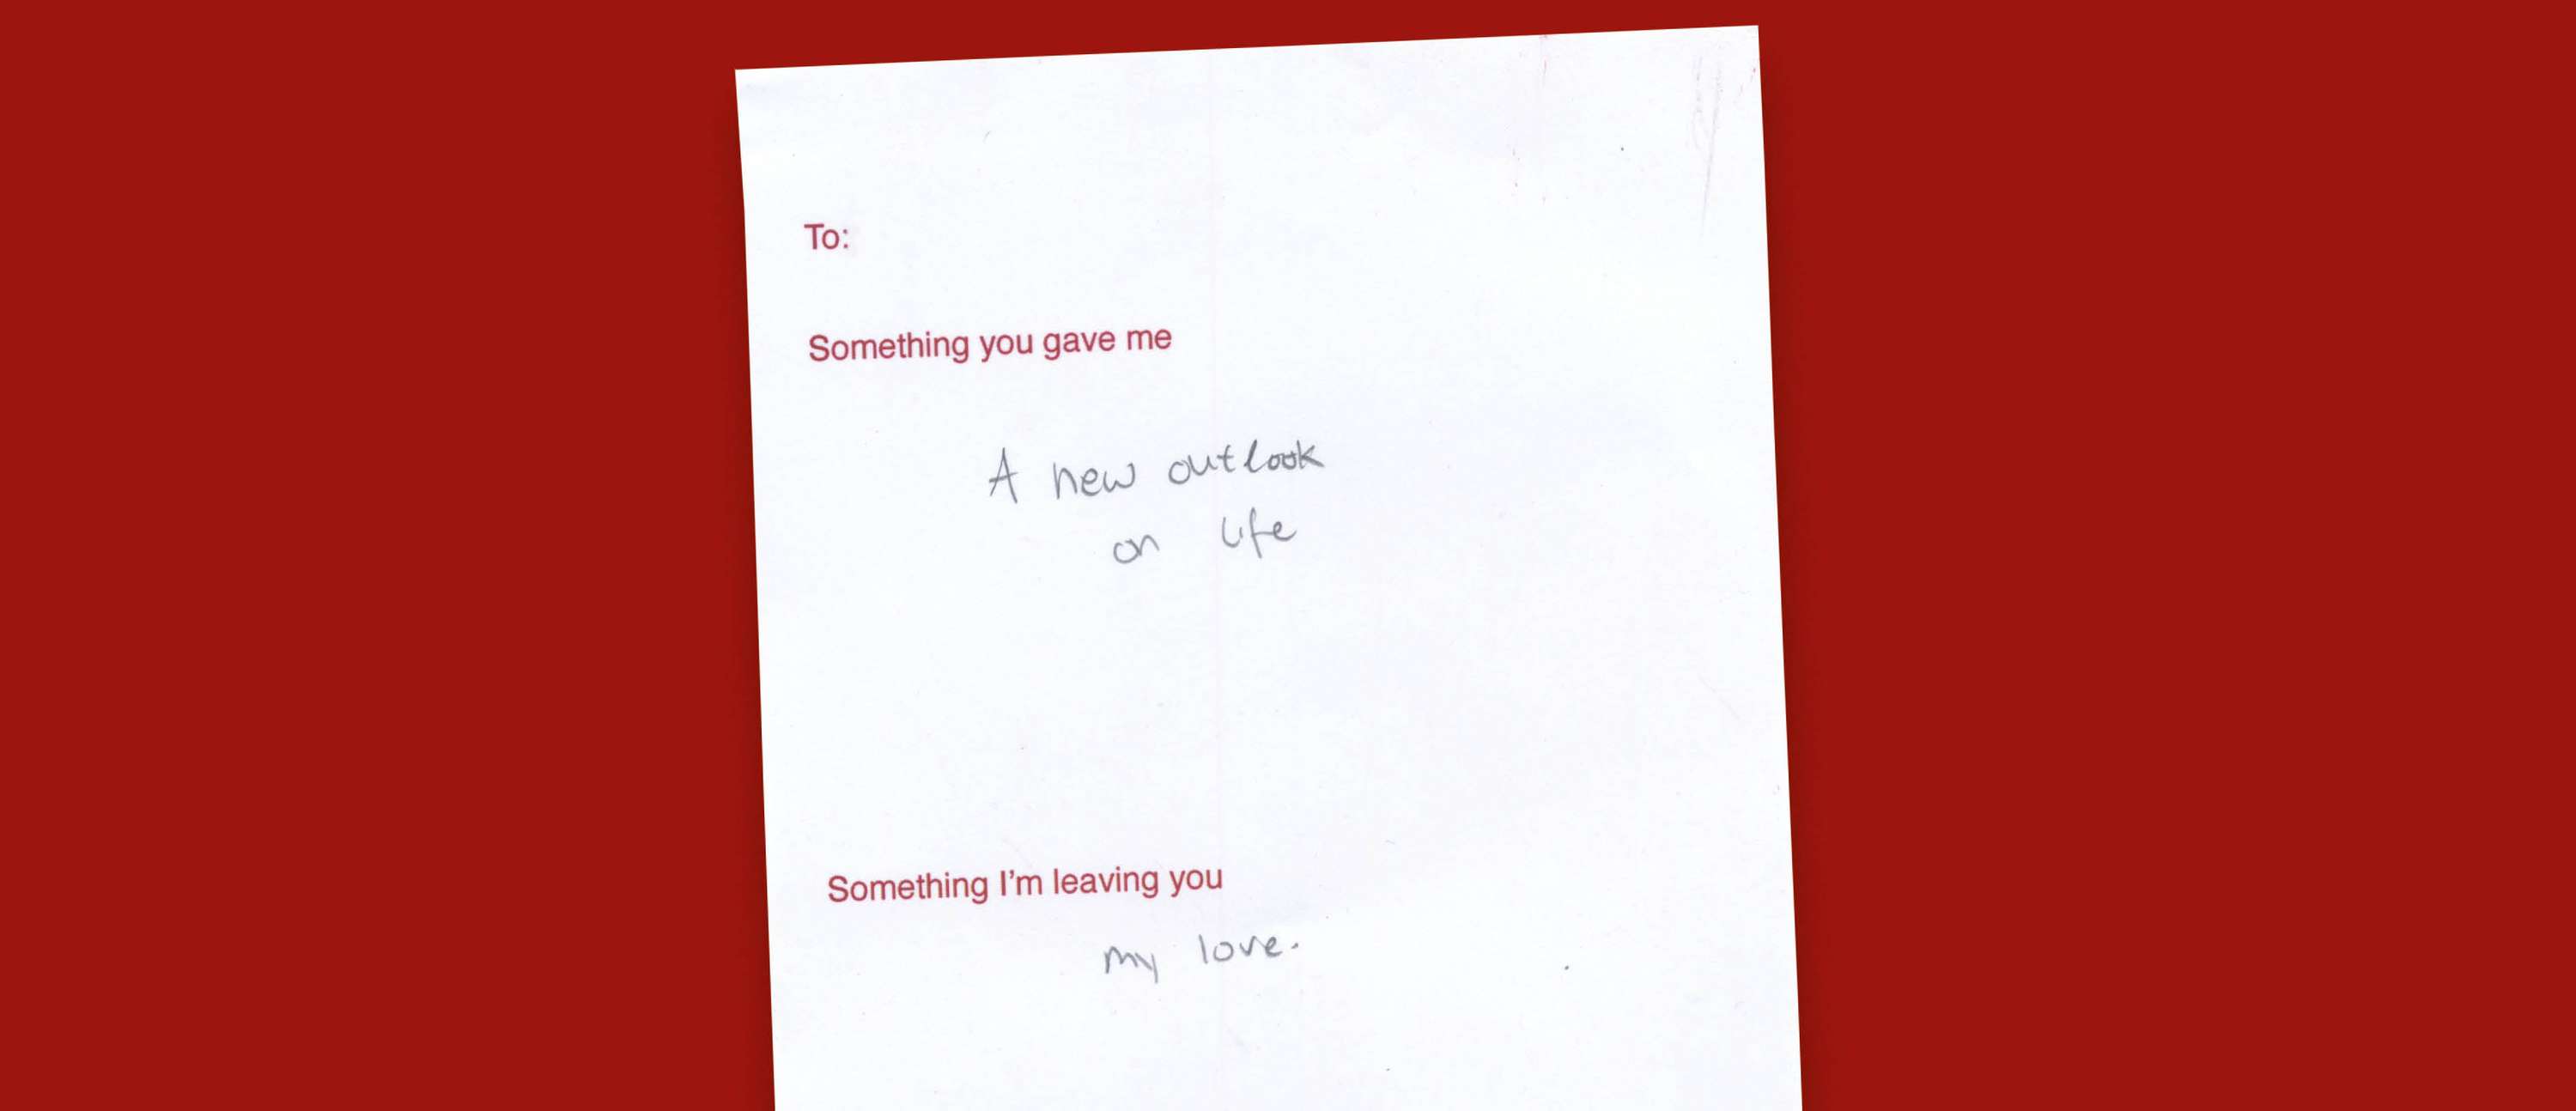 To:
Something you gave me
A new outlook
on life
Something I'm leaving you
my love.